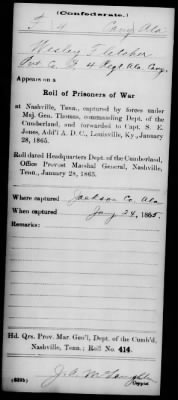 (Confederate.)
F 4 Cav, Ala
Wesley
Pvt Co. F, 4 Regt Ala Cav.
Appears on a
Roll of Prisoners of War
at Nashville, Tenn., captured by forces under
Maj. Gen. Thomas, commanding Dept. of the
Cumberland, and forwarded to Capt. S. E.
Jones, Add'l A. D. C., Louisville, Ky., January
28, 1865.
Roll dated Headquarters Dept. of the Cumberland,
Office Provost Marshal General, Nashville,
Tenn., January 28, 1865.
Where captured Jackson Co Ala
When captured Jany 24, 1865.
Remarks:
Hd. Qrs. Prov. Mar. Gen'l, Dept. of the Cumb'd,
Nashville, Tenn.; Roll No. 414.
J. A.
Copyist.